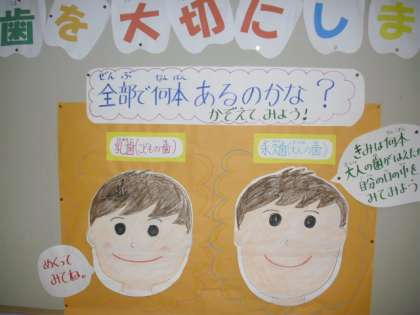 歯を大切にしま
ぜんぶ なんぼん
全部で何本あるのかな？
かぞえてみよう！
乳歯(こどもの歯)
永久歯(大人の歯)
きみは何本
大人の歯がはえたか
自分の口の中を
みてみよう
めくって
みてね。